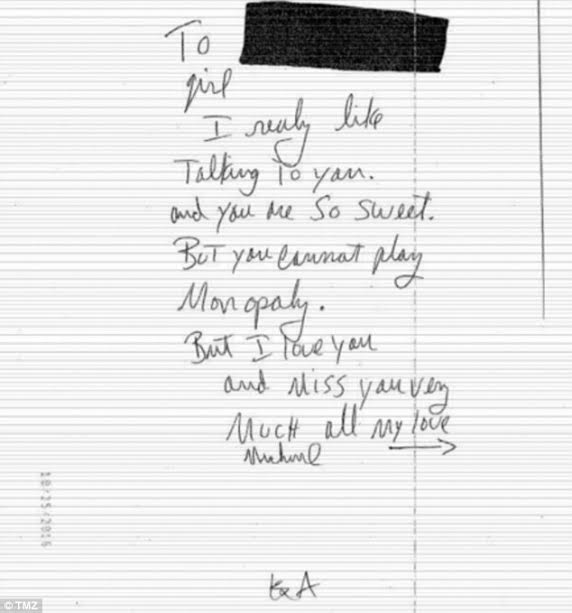 To
girl
I realy like
Talking To you.
and you are So Sweet.
BuT you cannot play
Monopaly.
But I love you
and Miss you very
MucH all My love
Michael
10/25/2016
Q A
© TMZ